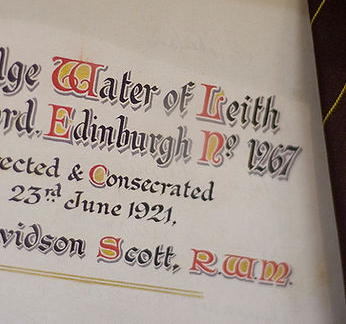 dge Water of Leith
ord. Edinburgh No. 1267
rected & Consecrated
23rd June 1921.
vidson Scott, R.W.M.